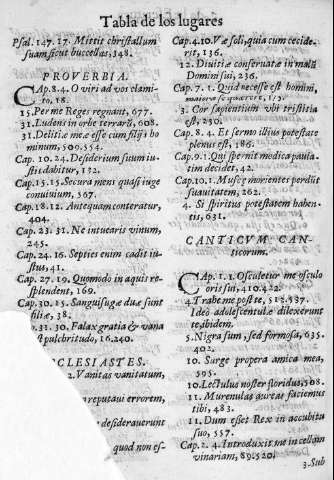 Tabla de los lugares
Psal. 147. 17. Mittit christallum
suam sicut buccellas, 348.
PROVERBIA.
CAp. 8. 4. O viri ad vos clami-
to, 18.
15. Per me Reges regnant, 677.
31. Ludens in orbe terrarũ, 608.
31. Delitiæ meæ esse cum filijs ho
minum, 509. 554.
Cap. 10. 24. Desiderium suum iu-
stis dabitur, 132.
Cap. 15. 15. Secura mens quasi iuge
convivium, 567.
Cap. 18. 12. Antequam conteratur,
404.
Cap. 23. 31. Ne intuearis vinum,
245.
Cap. 24. 16. Septies enim cadit iu-
stus, 41.
Cap. 27. 19. Quomodo in aquis re-
splendent, 169.
Cap. 30. 15. Sanguisugæ duæ sunt
filiæ, 38.
31. 30. Falax gratia & vana
st pulchritudo, 16. 240.
CLESIASTES.
2. Vanitas vanitatum,
reputavi errorem,
desideraverunt
quod non es-
Cap. 4. 10. Væ soli, quia cum cecide-
rit, 136.
12. Divitiæ conservatæ in malũ
Domini sui, 236.
Cap. 7. 1. Quid necesse est homini
maiora se quærere, 173.
3. Cor sapientium vbi tristitia
est, 230.
Cap. 8. 4. Et sermo illius potestate
plenus est, 186.
Cap. 9. 1. Qui spernit modica paula-
tim decidet, 42.
Cap. 10. 1. Muscæ morientes perdũt
suavitatem, 262.
4. Si spiritus potestatem haben-
tis, 631.
CANTICVM CAN-
ticorum.
CAp. 1. 1. Osculetur me osculo
oris sui, 410. 422.
4 Trahe me post te, 512. 537.
Ideo adolescentulæ dilexerunt
te, ibidem.
5. Nigra sum, sed formosa, 635.
402.
10. Surge propera amica mea,
595.
10. Lectulus noster floridus, 508.
11. Murenulas aureas faciemus
tibi, 483.
11. Dum esset Rex in accubitu
suo, 557.
Cap. 2. 4. Introduxit me in cellam
vinariam, 89. 520.
3. Sub